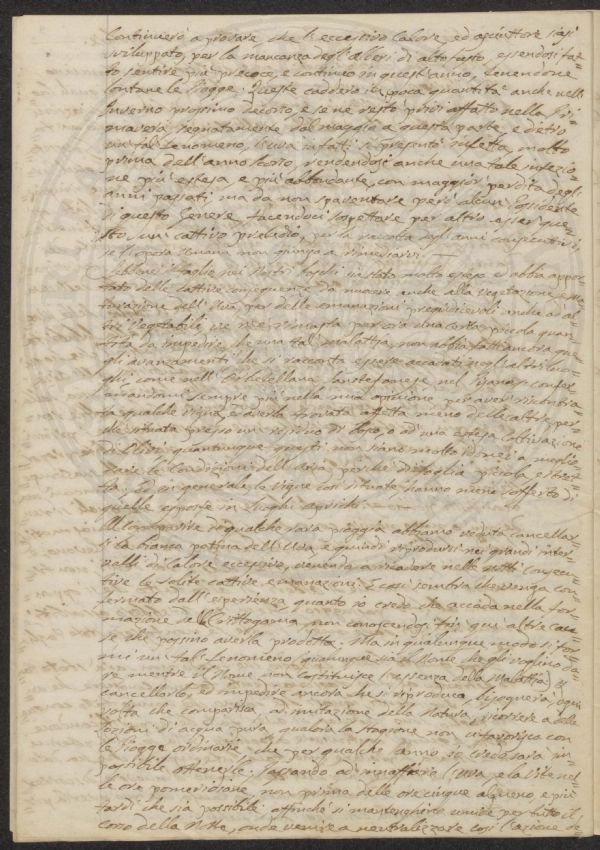 Continuerò a provare che l'eccessivo calore, ed asciuttore siasi
sviluppato, per la mancanza degli alberi di alto fusto, essendosi fat-
to sentire più precoce, e continuo in quest'anno, tenendone
lontane le piogge. Queste caddero in poca quantità anche nell'
Inverno prossimo decorso, e se ne restò privi affatto nella Pri-
mavera segnatamente dal maggio a questa parte, e dietro
un tal fenomeno, l'uva infatti si presentò infetta, molto
prima dell'anno scorso, rendendosi anche una tale infezio-
ne più estesa, e più abbondante, con maggior perdita degli
anni passati ma da non spaventare però alcun Possidente
di questo genere, facendoci sospettare per altro esser que-
sto un cattivo preludio, per la raccolta degli anni consecutivi,
se l'opera umana non giunga a rimediarvi.
Sebbene il taglio nei nostri boschi sia stato molto esteso, ed abbia appor-
tato delle cattive conseguenze da nuocere anche alla vegetazione, e ma-
turazione dell'Uva, per delle emanazioni pregiudicevoli anche ad al-
tri vegetabili, ve n'è rimasta per ora una certa piccola quan-
tità da impedire, che una tal malattia, non abbia fatti ancora que-
gli avanzamenti che si racconta essere accaduti negli altri luo-
ghi, come nell' Orbetellana Santostefanese nel Pisano; confer-
mandomi sempre più nella mia opinione per aver riscontra-
ta qualche vigna, e averla trovata affetta meno delle altre, per-
chè situata presso un residuo di bosco, o ad una estesa coltivazione
di Olivi quantunque questi non siano molto idonei a miglio-
rare le condizioni dell'aria, perchè di foglia piccola, e stret-
ta. Ed in generale le vigne così situate hanno meno sofferto di
quelle esposte in luoghi aprichi.
Al comparire di qualche rara pioggia abbiamo veduta cancellar-
si la bianca patina dell'Uva, e quindi riprodursi nei grandi inter-
valli di calore eccessivo, venendo a ricadere nelle notti consecu-
tive le solite cattive emanazioni. E così sembra che venga con-
fermato dall'esperienza quanto io credo che accada nella for-
mazione della Crittogama non conoscendosi fin qui altre cau-
se che possino averla prodotta. Ma in qualunque modo si for-
mi un tal fenomeno (qualunque sia il Nome che gli vogliono da-
re mentre il Nome non costituisce l'essenza della Malattia) e
cancellarlo, ed impedire ancora che si riproduca, bisognerà, ogni
volta che comparisca ad imitazione della Natura, ricorrere a delle
lozioni di acqua pura qualora la stagione non ci favorisca con
le piogge ordinarie che per qualche anno io credo sarà im-
possibile ottenerle; passando ad innaffiare l'Uva, e la Vite nel-
le ore pomeridiane, non prima delle ore cinque almeno e più
tardi che sia possibile, affinchè si mantenghino umide per tutto il
corso della Notte, onde venire a neutralizzare così l'azione de